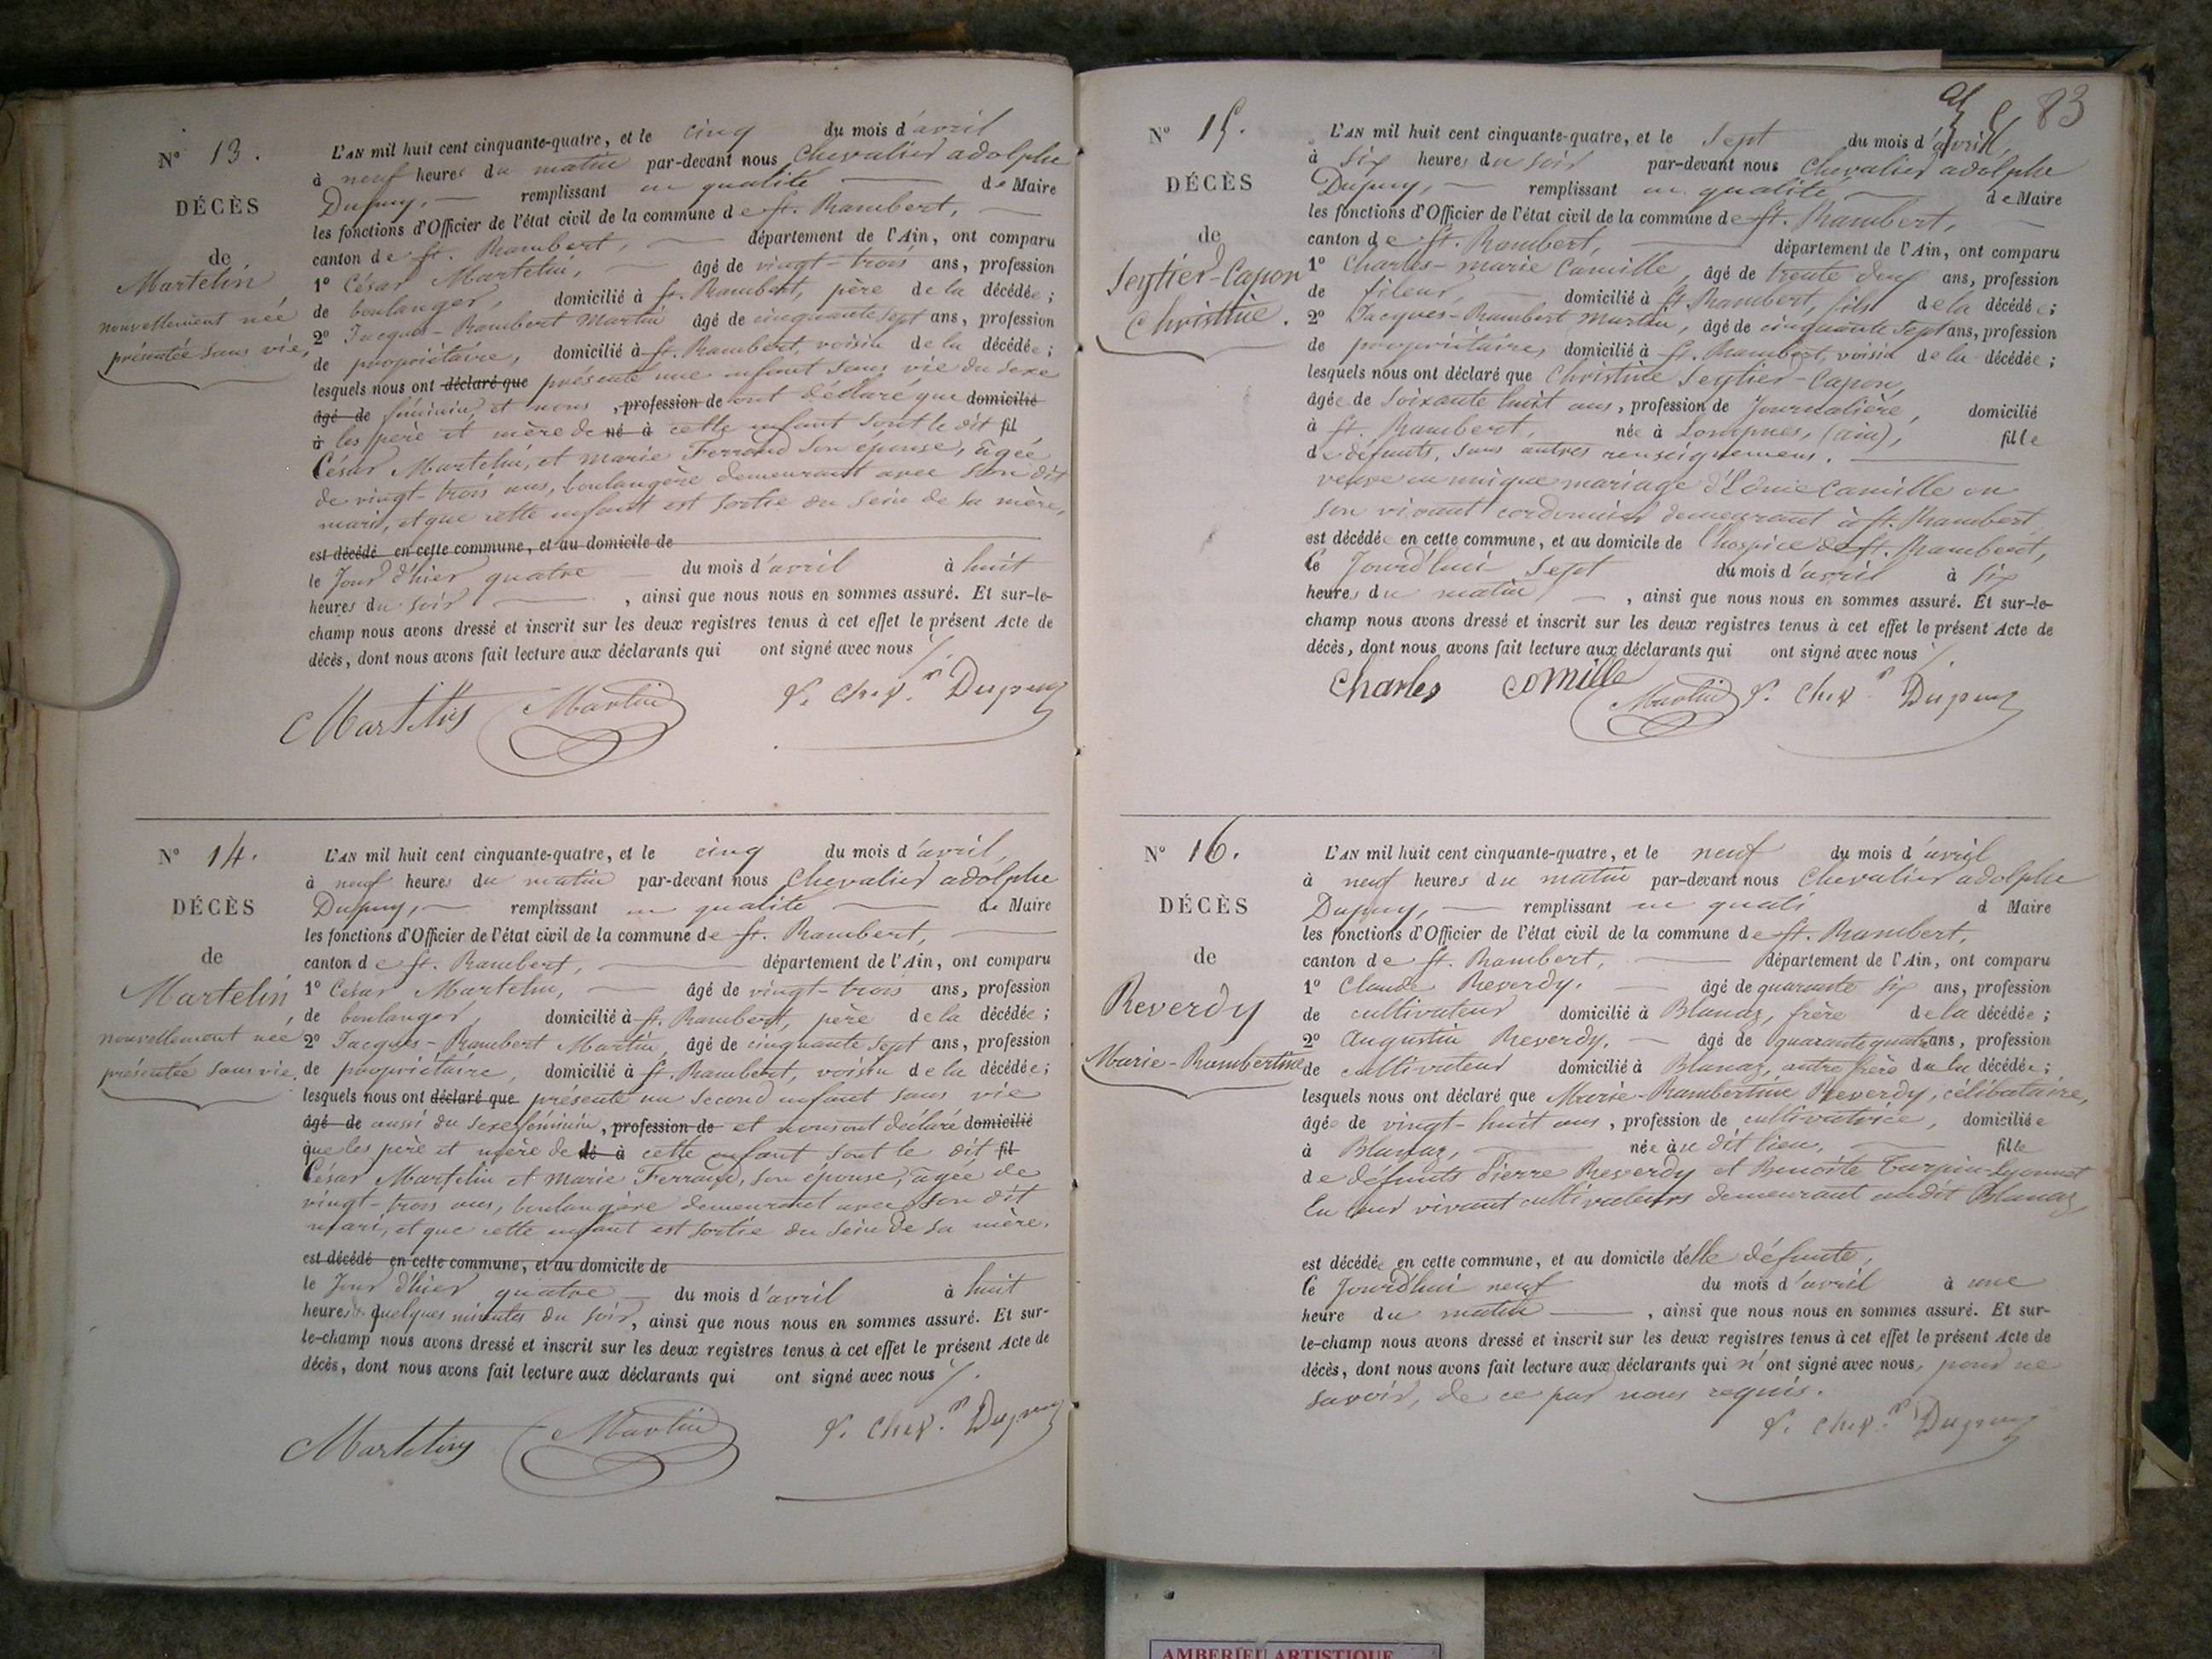 N° 13.
DÉCÈS
de
Martelin
nouvellement née
présentée sans vie,
L'AN mil huit cent cinquante-quatre, et le cinq du mois d'avril
à neuf heures du matin par-devant nous Chevalier adolphe
Dupuy, remplissant en qualité de Maire
les fonctions d'Officier de l'état civil de la commune de St. Rambert,
canton de St. Rambert, département de l'Ain, ont comparu
1° César Martelin, âgé de vingt-trois ans, profession
de boulanger, domicilié à St. Rambert, père de la décédée;
2° Jacques-Rambert Martin âgé de cinquante sept ans, profession
de propriétaire, domicilié à St. Rambert, voisin de la décédée;
lesquels nous ont déclaré que présenté une enfant sans vie du sexe
âgé de féminin, et nous , profession de ont déclaré que domicilié
à les père et mère de né à cette enfant sont le dit fil
César Martelin, et marie Ferrand son épouse, âgée
de vingt-trois ans, boulangère demeurant avec son dit
mari, et que cette enfant est sortie du sein de sa mère,
est décédé en cette commune, et au domicile de
le Jour d'hier quatre du mois d'avril à huit
heures du soir , ainsi que nous nous en sommes assuré. Et sur-le-
champ nous avons dressé et inscrit sur les deux registres tenus à cet effet le présent Acte de
décès, dont nous avons fait lecture aux déclarants qui ont signé avec nous /.
Martelin Martin Dupuy
N° 14.
DÉCÈS
de
Martelin
nouvellement née
présentée sans vie.
L'AN mil huit cent cinquante-quatre, et le cinq du mois d'avril,
à neuf heures du matin par-devant nous Chevalier adolphe
Dupuy, remplissant en qualité de Maire
les fonctions d'Officier de l'état civil de la commune de St. Rambert,
canton de St. Rambert, département de l'Ain, ont comparu
1° César Martelin, âgé de vingt-trois ans, profession
de boulanger, domicilié à St. Rambert, père de la décédée;
2° Jacques-Rambert Martin, âgé de cinquante sept ans, profession
de propriétaire, domicilié à St. Rambert, voisin de la décédée;
lesquels nous ont déclaré que présenté un second enfant sans vie
âgé de aussi du sexe féminin, profession de et nous ont déclaré domicilié
que les père et mère de né à cette enfant sont le dit fil
César Martelin et marie Ferrand, son épouse, âgée de
vingt-trois ans, boulangère demeurant avec son dit
mari, et que cette enfant est sortie du sein de sa mère.
est décédé en cette commune, et au domicile de
le Jour d'hier quatre du mois d'avril à huit
heures & quelques minutes du soir, ainsi que nous nous en sommes assuré. Et sur-
le-champ nous avons dressé et inscrit sur les deux registres tenus à cet effet le présent Acte de
décès, dont nous avons fait lecture aux déclarants qui ont signé avec nous /.
Martelin Martin Dupuy
83
N° 15.
DÉCÈS
de
Seytier-Capon
Christine.
L'AN mil huit cent cinquante-quatre, et le Sept du mois d'avril,
à Six heures du soir par-devant nous Chevalier adolphe
Dupuy, remplissant en qualité de Maire
les fonctions d'Officier de l'état civil de la commune de St. Rambert,
canton de St. Rambert, département de l'Ain, ont comparu
1° Charles-marie Camille, âgé de trente deux ans, profession
de fileur, domicilié à St. Rambert, fils de la décédée;
2° Jacques-Rambert Martin, âgé de cinquante Sept ans, profession
de propriétaire, domicilié à St. Rambert, voisin de la décédée;
lesquels nous ont déclaré que Christine Seytier-Capon,
âgée de soixante huit ans, profession de Journalière, domicilié
à St. Rambert, née à Lompnes, (ain), fille
de défunts, sans autres renseignemens.
veuve en unique mariage d' Camille en
son vivant cordonnier demeurant à St. Rambert
est décédée en cette commune, et au domicile de l'hospice de St. Rambert,
le Jourd'hui Sept du mois d'avril à Six
heures du matin, , ainsi que nous nous en sommes assuré. Et sur-le-
champ nous avons dressé et inscrit sur les deux registres tenus à cet effet le présent Acte de
décès, dont nous avons fait lecture aux déclarants qui ont signé avec nous /.
Charles comille Martin Dupuy
N° 16.
DÉCÈS
de
Reverdy
Marie-Rambertine
L'AN mil huit cent cinquante-quatre, et le neuf du mois d'avril
à neuf heures du matin par-devant nous Chevalier adolphe
Dupuy, remplissant en quali d Maire
les fonctions d'Officier de l'état civil de la commune de St. Rambert,
canton de St. Rambert, département de l'Ain, ont comparu
1° Claude Reverdy, âgé de quarante six ans, profession
de cultivateur domicilié à Blanaz, frère de la décédée;
2° Augustin Reverdy, âgé de quarante quatre ans, profession
de cultivateur domicilié à Blanaz, autre frère de la décédée;
lesquels nous ont déclaré que Marie-Rambertine Reverdy, célibataire,
âgée de vingt-huit ans, profession de cultivatrice, domiciliée
à Blanaz, née au dit lieu, fille
de défunts Pierre Reverdy et Benoite Turpin-Lyonnet
en leur vivant cultivateurs demeurant audit Blanaz
est décédée en cette commune, et au domicile d'elle défunte,
le Jourd'hui neuf du mois d'avril à une
heure du matin , ainsi que nous nous en sommes assuré. Et sur-
le-champ nous avons dressé et inscrit sur les deux registres tenus à cet effet le présent Acte de
décès, dont nous avons fait lecture aux déclarants qui n'ont signé avec nous, pour ne
savoir, de ce par nous requis.
Dupuy
AMBERIEU ARTISTIQUE